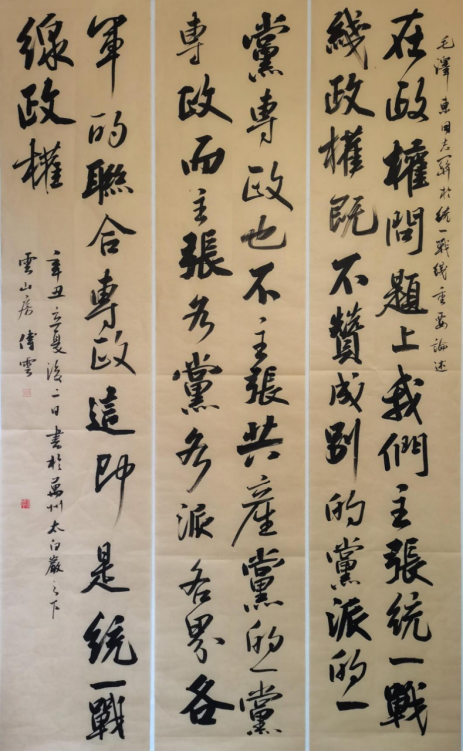 毛澤東同志關於統一戰綫重要論述
在政權問題上我們主張統一戰
綫政權既不贊成别的黨派的一
黨專政也不主張共產黨的一黨
專政而主張各黨各派各界各
軍的聯合專政這即是統一戰
線政權
辛丑立夏後二日書於萬州太白巖之下
雲山房傅雲